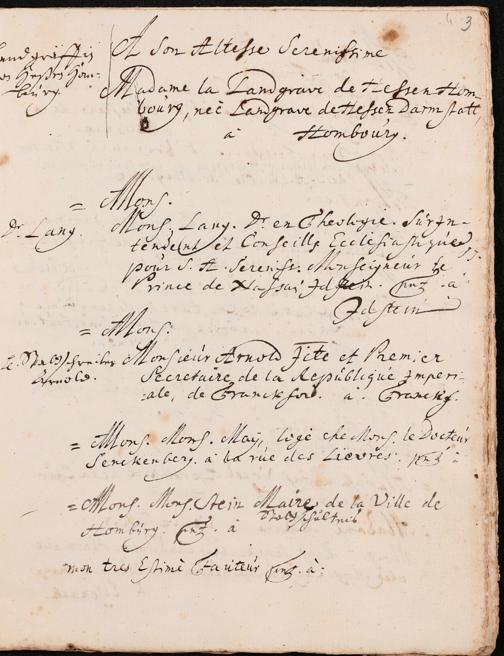 3
A Son Altesse Serenissime
Madame la Landgrave de Hessen Hom-
bourg, neé Landgrave de Hessen Darmstatt,
à Hombourg.
= Mons.
Dr. Lang.
Mons. Lang. Dr. en Theologie. Surjn-
tendent et Conseills Ecclesiastique,
pour S. A. Sereniss. Monseigneur le
Prince de Nassau Jdstein. à
Jdstein
= Mons.
Arnold.
Monsieur Arnold Jite et Premier
Secretaire de la Republique Jmperi-
:ale, de Franckford. a. Franckf.
= Mons. Mons. May, logé che Mons. le Docteur
Senckenberg. à la rue des Lievres.
= Mons. Mons. Stein Maire de la Ville de
Hombürg. à
mon tres Estimé Fauteur à: